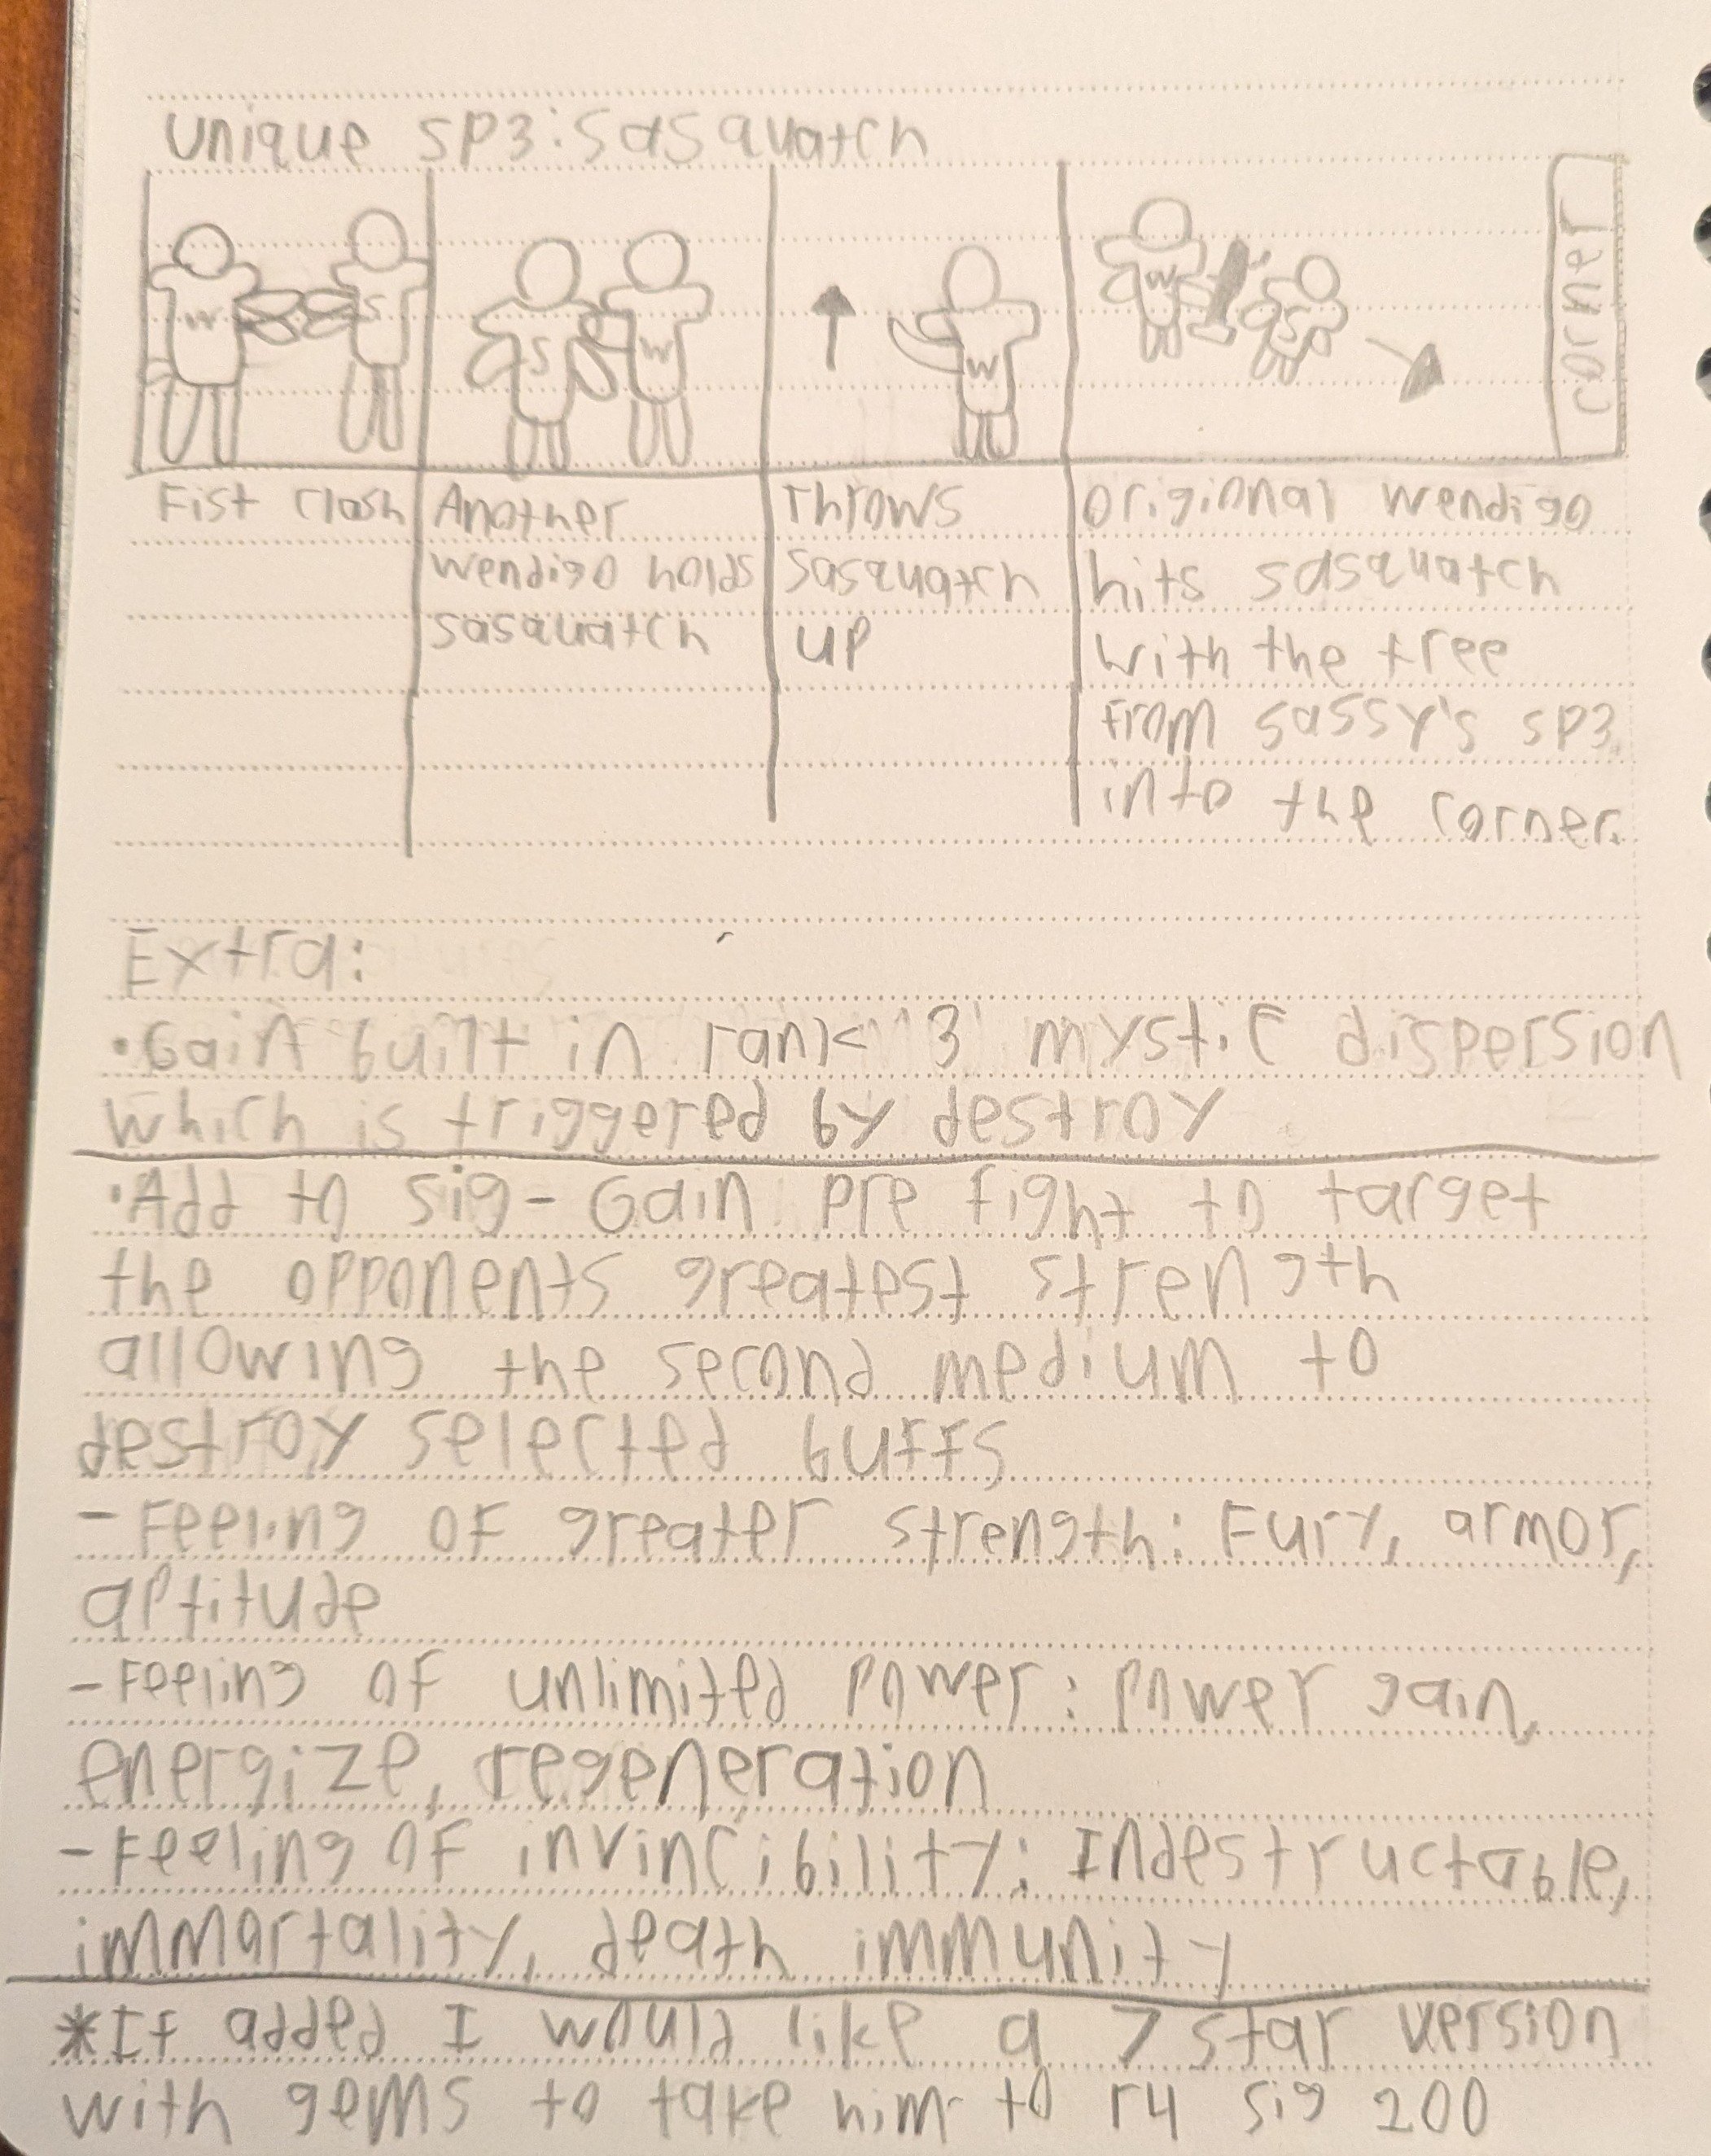 Unique SP3: Sasquatch
W S
S W
W
W S
corner
Fist clash
Another
wendigo holds
sasquatch
Throws
sasquatch
up
origional wendigo
hits sasquatch
with the tree
from sassy's sp3
into the corner.
Extra:
• Gain built in rank 3 mystic dispersion
which is triggered by destroy
• Add to sig - Gain pre fight to target
the opponents greatest strength
allowing the second medium to
destroy selected buffs
- Feeling of greater strength: Fury, armor,
aptitude
- Feeling of unlimited power: power gain,
energize, regeneration
- Feeling of invincibility: Indestructable,
immortality, death immunity
*If added I would like a 7 star version
with gems to take him to r4 sig 200